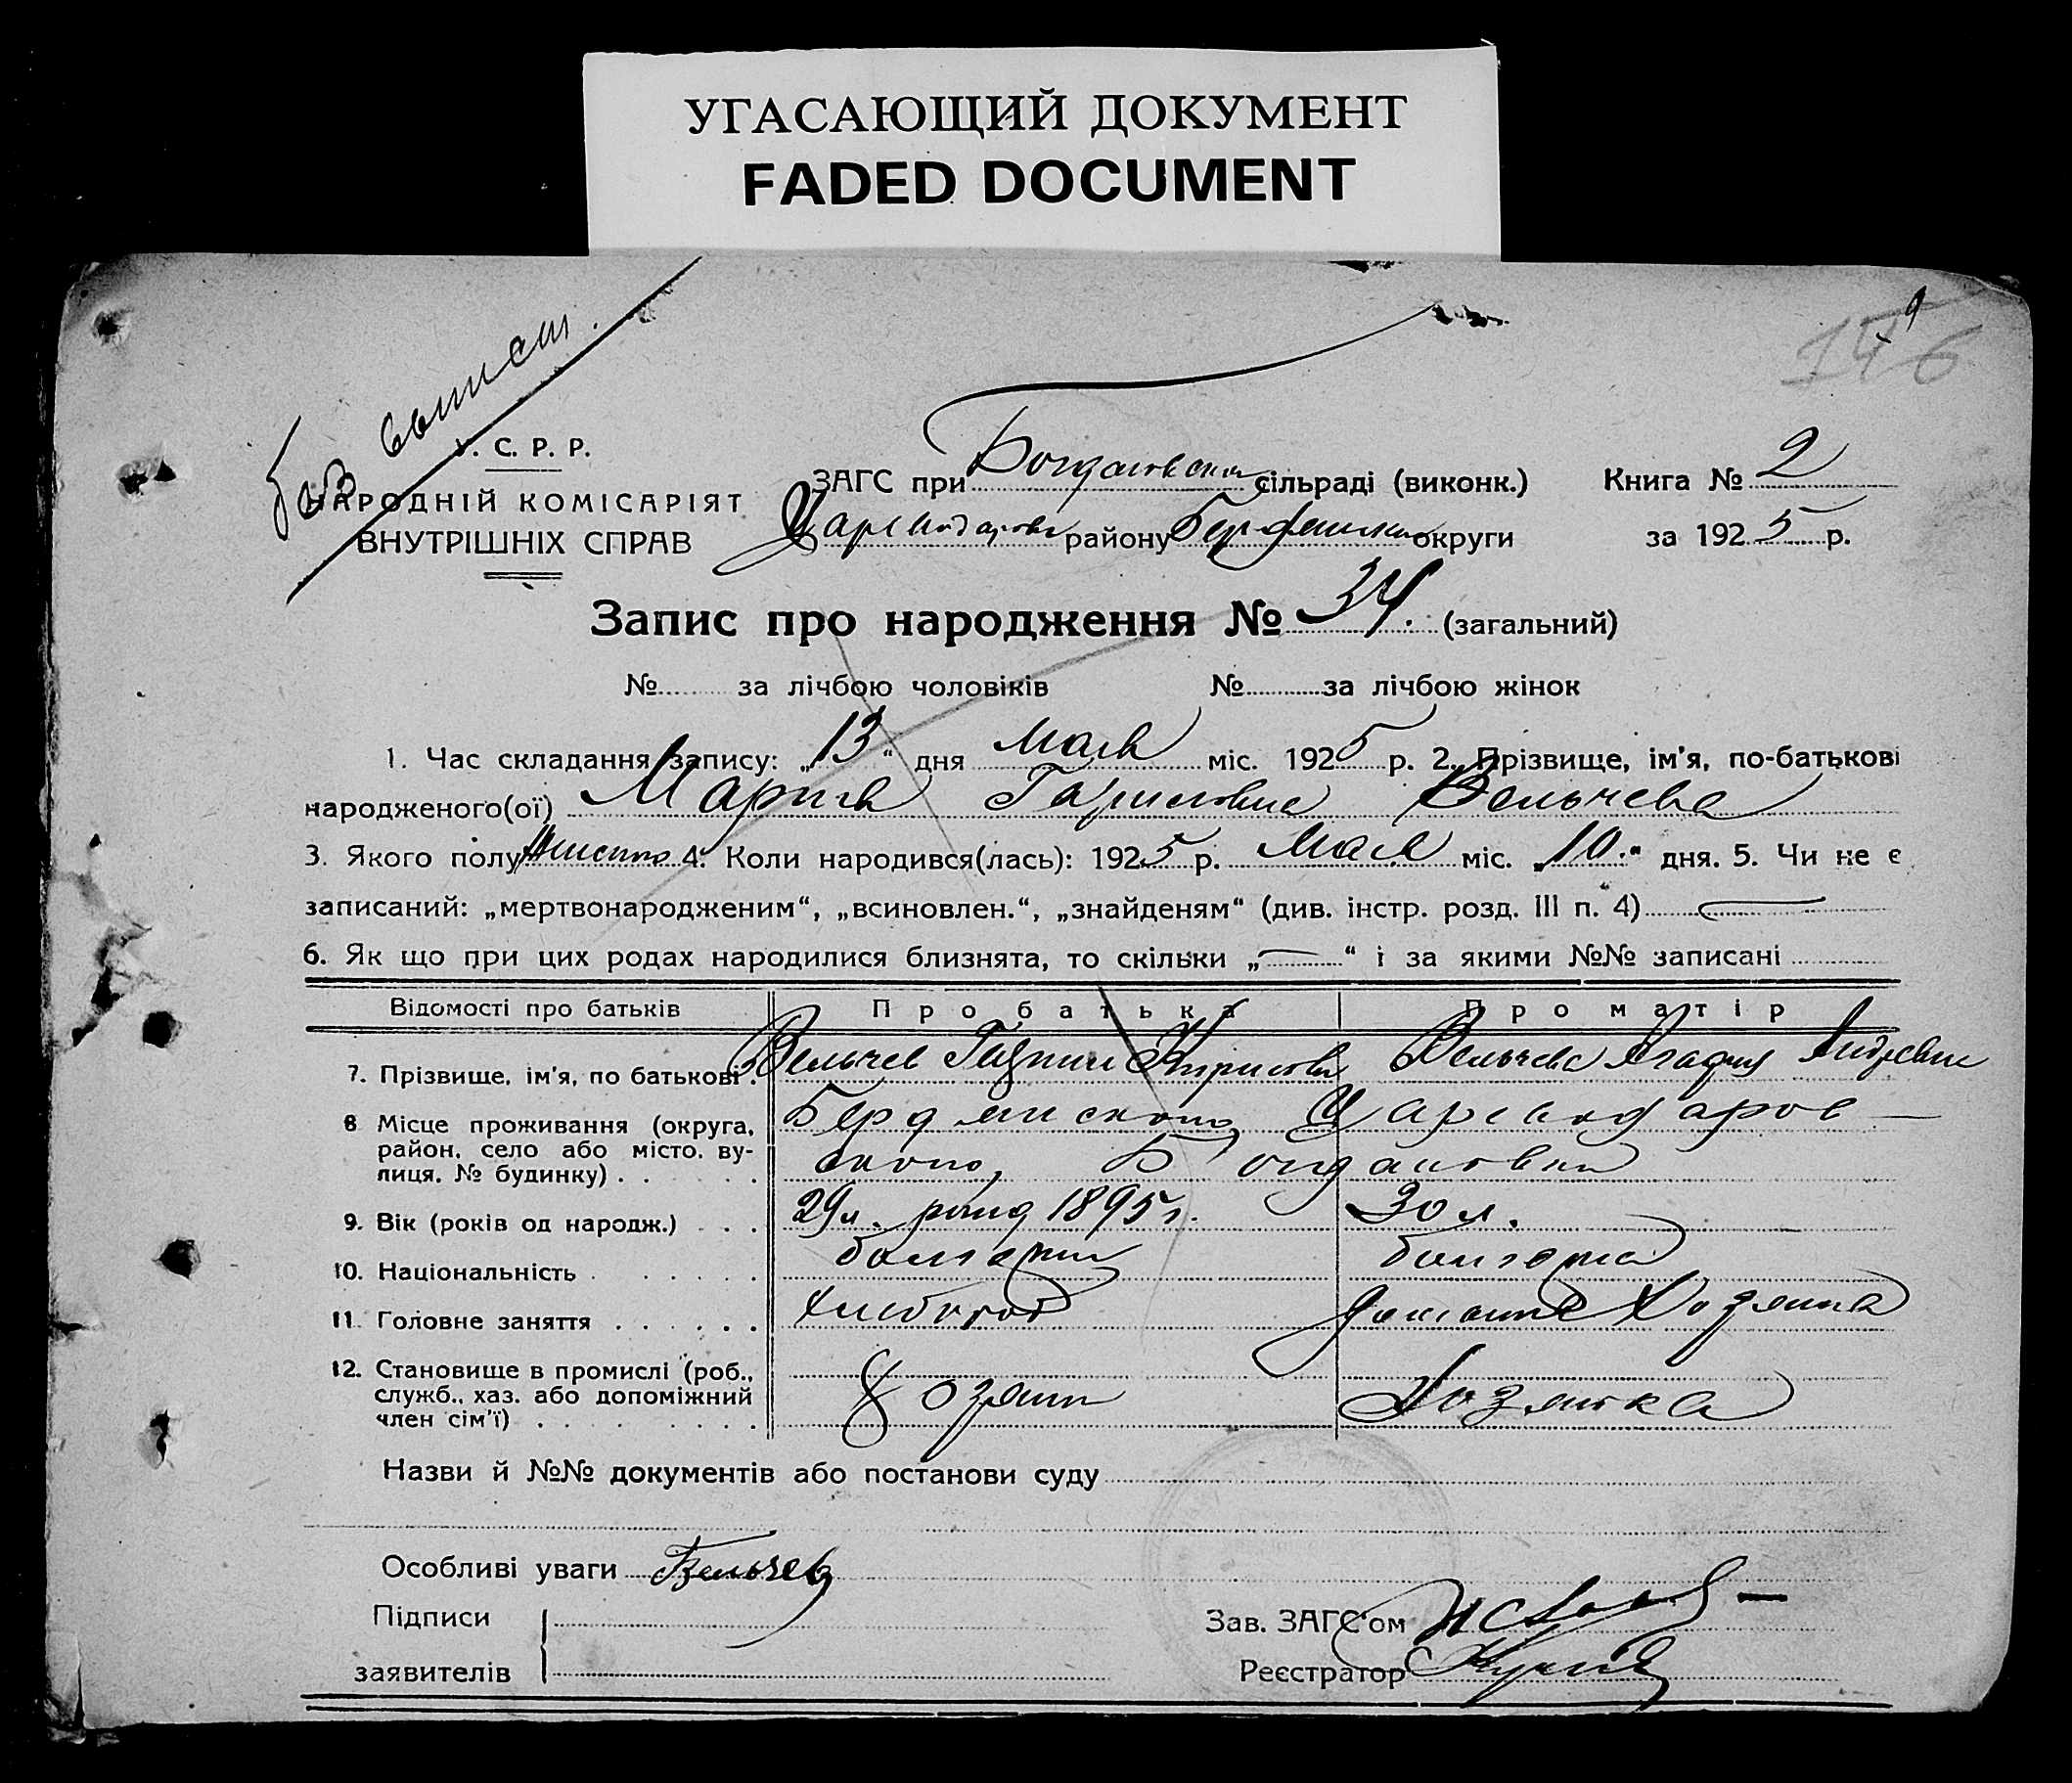 УГАСАЮЩИЙ ДОКУМЕНТ
FADED DOCUMENT
без выписи.
146
У. С. Р. Р.
НАРОДНІЙ КОМІСАРІЯТ
ВНУТРІШНІХ СПРАВ
ЗАГС при Богдановской сільраді (виконк.) Книга № 2
району округи за 1925 р.
Запис про народження № 34. (загальний)
№ за лічбою чоловіків № за лічбою жінок
1. Час складання запису: „13“ дня Мая міс. 1925 р. 2. Прізвище, ім'я, по-батькові
народженого(ої) Мария Вельчева
3. Якого полу 4. Коли народився(лась): 1925 р. Мая міс. „10.“ дня. 5. Чи не є
записаний: „мертвонародженим“, „всиновлен.“, „знайденям“ (див. інстр. розд. III п. 4)
6. Як що при цих родах народилися близнята, то скільки „—“ і за якими №№ записані
Відомості про батьків Про батька Про матір
7. Прізвище, ім'я, по батькові. Вельчев Вельчева Агафия Андреевна
8 Місце проживання (округа, район, село або місто, вулиця, № будинку) . . . Бердянского Цареводаров—
ского, Богдановка
9. Вік (років од народж.) . . . 29 л. рожд 1895 г. 30 л.
10. Національність . . . . . . болгарин болгарка
11. Головне заняття . . . . . . хлебороб Домашняя Хозяйка
12. Становище в промислі (роб., служб., хаз. або допоміжний член сім'ї) . . . . . . Хозяин Хозяйка
Назви й №№ документів або постанови суду
Особливі уваги Вельчев
Підписи
заявителів
Зав. ЗАГС'ом
Реєстратор